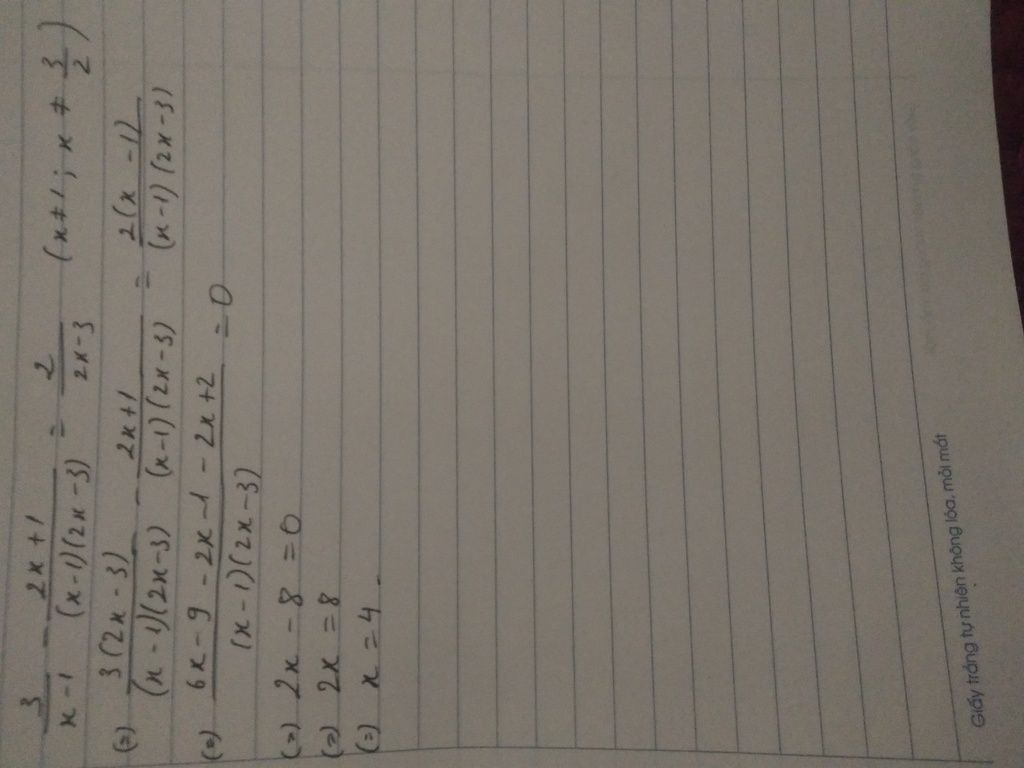 3/(x-1) - (2x+1)/((x-1)(2x-3)) = 2/(2x-3) (x≠1; x≠3/2)
(=) 3(2x-3)/((x-1)(2x-3)) - (2x+1)/((x-1)(2x-3)) = 2(x-1)/((x-1)(2x-3))
(=) (6x-9-2x-1-2x+2)/((x-1)(2x-3)) = 0
(=) 2x-8=0
(=) 2x=8
(=) x=4.
Giấy trắng tự nhiên không lóa, mỏi mắt